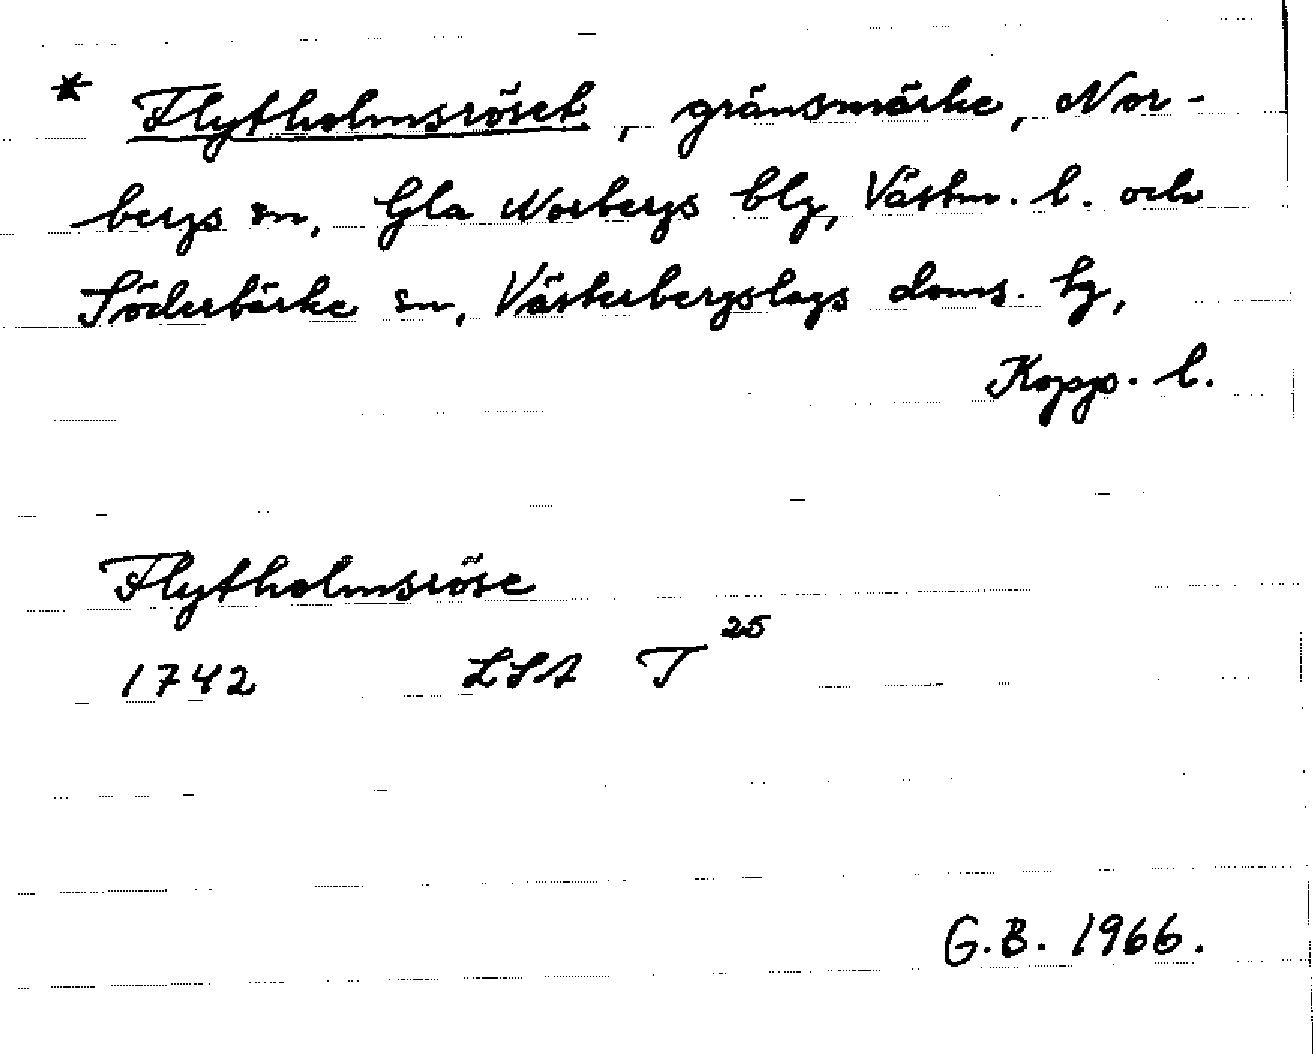 * Flytholmsröset, gränsmärke, Nor-
bergs sn, Gla Norbergs blg, Västm. l. och
Söderbärke sn, Västerbergslags doms. hg,
Kopp. l.
Flytholmsröse
1742 LSA T 25
G.B. 1966.